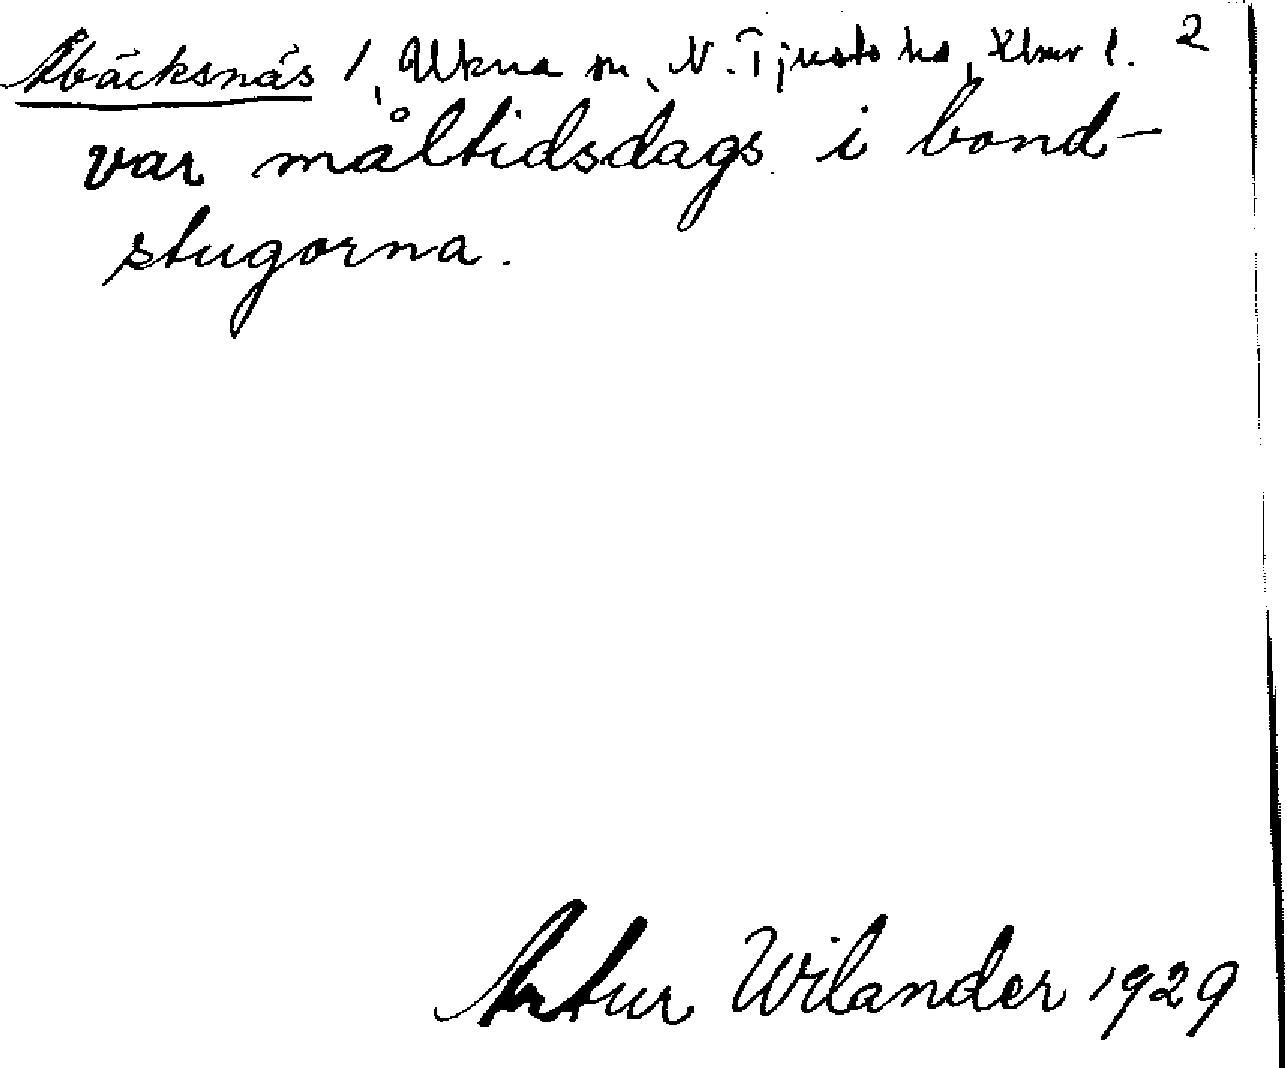 Åbäcksnäs 1, Ukna sn, N. Tjusts hd, Klmr l. 2
var måltidsdags i bond-
stugorna.
Artur Wilander 1929